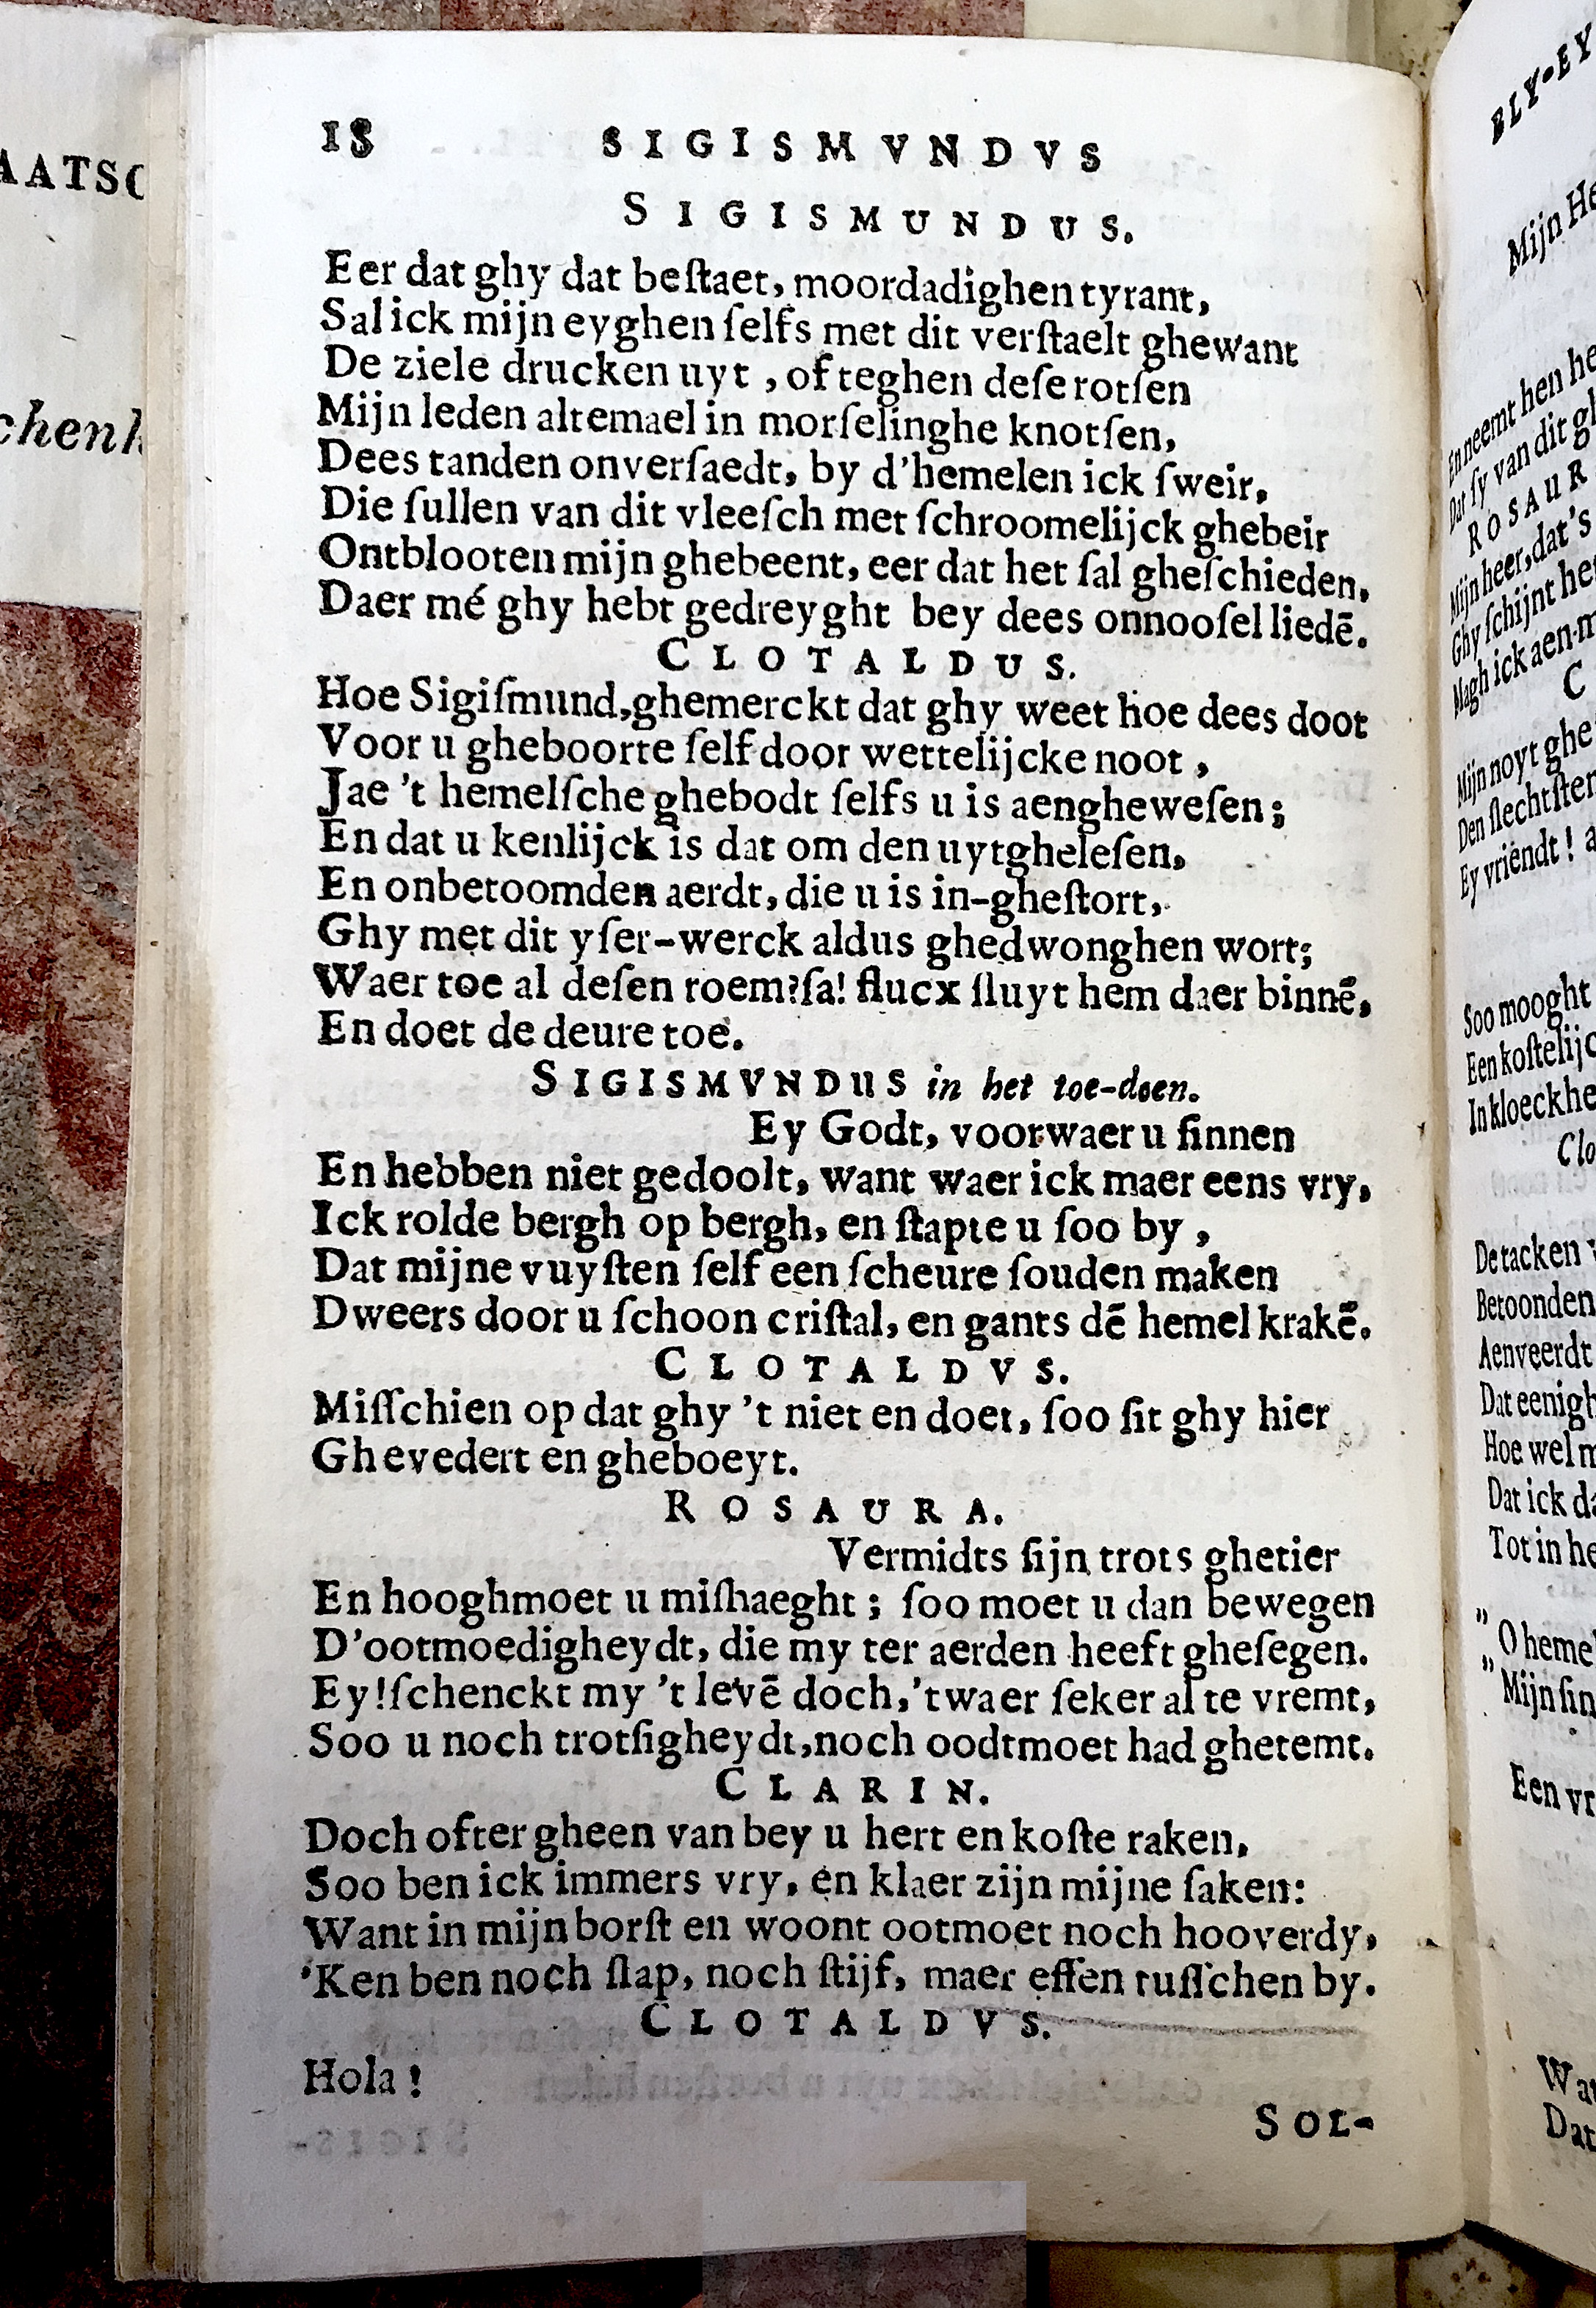 18 SIGISMVNDVS
SIGISMUNDUS.
Eer dat ghy dat beſtaet, moordadighen tyrant,
Sal ick mijn eyghen ſelfs met dit verſtaelt ghewant
De ziele drucken uyt , of teghen deſe rotſen
Mijn leden altemael in morſelinghe knotſen,
Dees tanden onverſaedt, by d'hemelen ick ſweir,
Die ſullen van dit vleeſch met ſchroomelijck ghebeir
Ontblooten mijn ghebeent, eer dat het ſal gheſchieden,
Daer mé ghy hebt gedreyght bey dees onnooſel liedē.
CLOTALDUS.
Hoe Sigiſmund, ghemerckt dat ghy weet hoe dees doot
Voor u gheboorte ſelf door wettelijcke noot ,
Jae 't hemelſche ghebodt ſelfs u is aengheweſen;
En dat u kenlijck is dat om den uytgheleſen,
En onbetoomden aerdt, die u is in-gheſtort,
Ghy met dit yſer-werck aldus ghedwonghen wort;
Waer toe al deſen roem? ſa! flucx ſluyt hem daer binnē,
En doet de deure toe.
SIGISMVNDUS in het toe-doen.
Ey Godt, voorwaer u ſinnen
En hebben niet gedoolt, want waer ick maer eens vry,
Ick rolde bergh op bergh, en ſtapte u ſoo by ,
Dat mijne vuyſten ſelf een ſcheure ſouden maken
Dweers door u ſchoon criſtal, en gants dē hemel krakē.
CLOTALDVS.
Miſſchien op dat ghy 't niet en doet, ſoo ſit ghy hier
Ghevedert en gheboeyt.
ROSAURA.
Vermidts ſijn trots ghetier
En hooghmoet u miſhaeght ; ſoo moet u dan bewegen
D'ootmoedigheydt, die my ter aerden heeft gheſegen.
Ey! ſchenckt my 't levē doch, 't waer ſeker al te vremt,
Soo u noch trotſigheydt, noch oodtmoet had ghetemt.
CLARIN.
Doch ofter gheen van bey u hert en koſte raken,
Soo ben ick immers vry, en klaer zijn mijne ſaken:
Want in mijn borſt en woont ootmoet noch hooverdy,
'Ken ben noch ſlap, noch ſtijf, maer effen tuſſchen by.
CLOTALDVS.
Hola !
SOL-
AATSC
chenk
BLY-EY
Mijn He
En neemt hen he
Dat ſy van dit gh
ROSAUR
Mijn heer, dat's
Ghy ſchijnt het
Magh ick aen m
C
Mijn noyt ghe
Den ſlechtſten
Ey vriendt ! a
Soo mooght
Een koſtelijc
In kloeckhe
Clo
De tacken v
Betoonden
Aenveerdt
Dat eenigh
Hoe wel m
Dat ick da
Tot in he
" O hemel
" Mijn ſin
Een vr
Wa
Dat